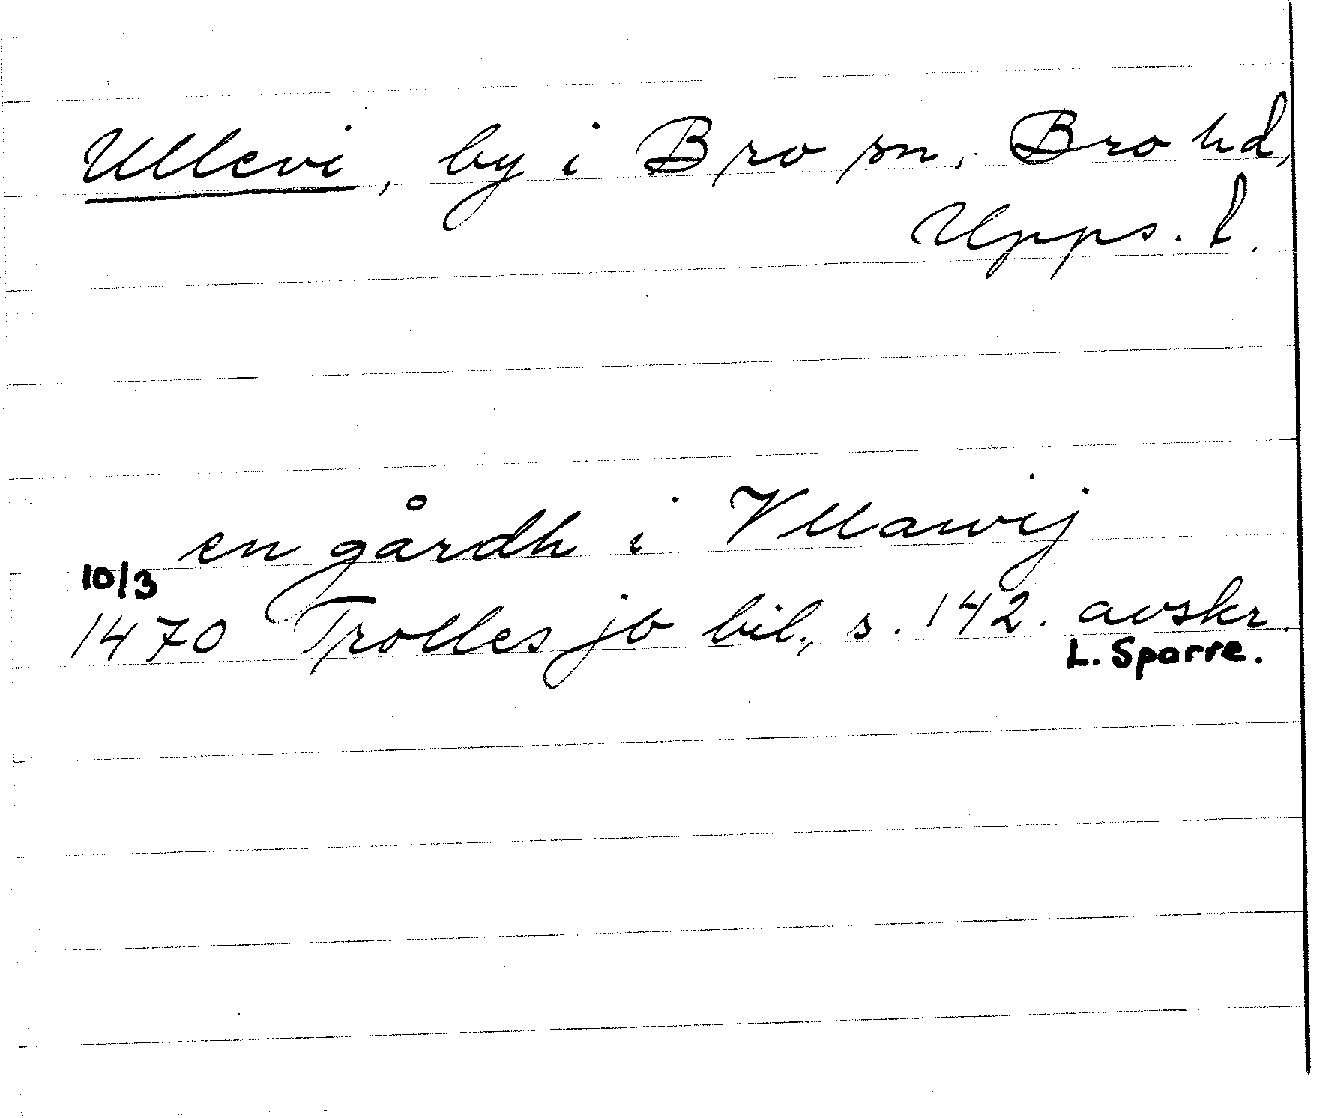 Ullevi, by i Bro sn, Bro hd,
Upps. l.
en gårdh i Vllawij
10/3
1470 Trolles jb bil., s. 142. avskr.
L. Sparre.